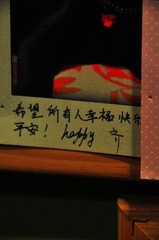 希望所有人幸福快乐
平安！happy